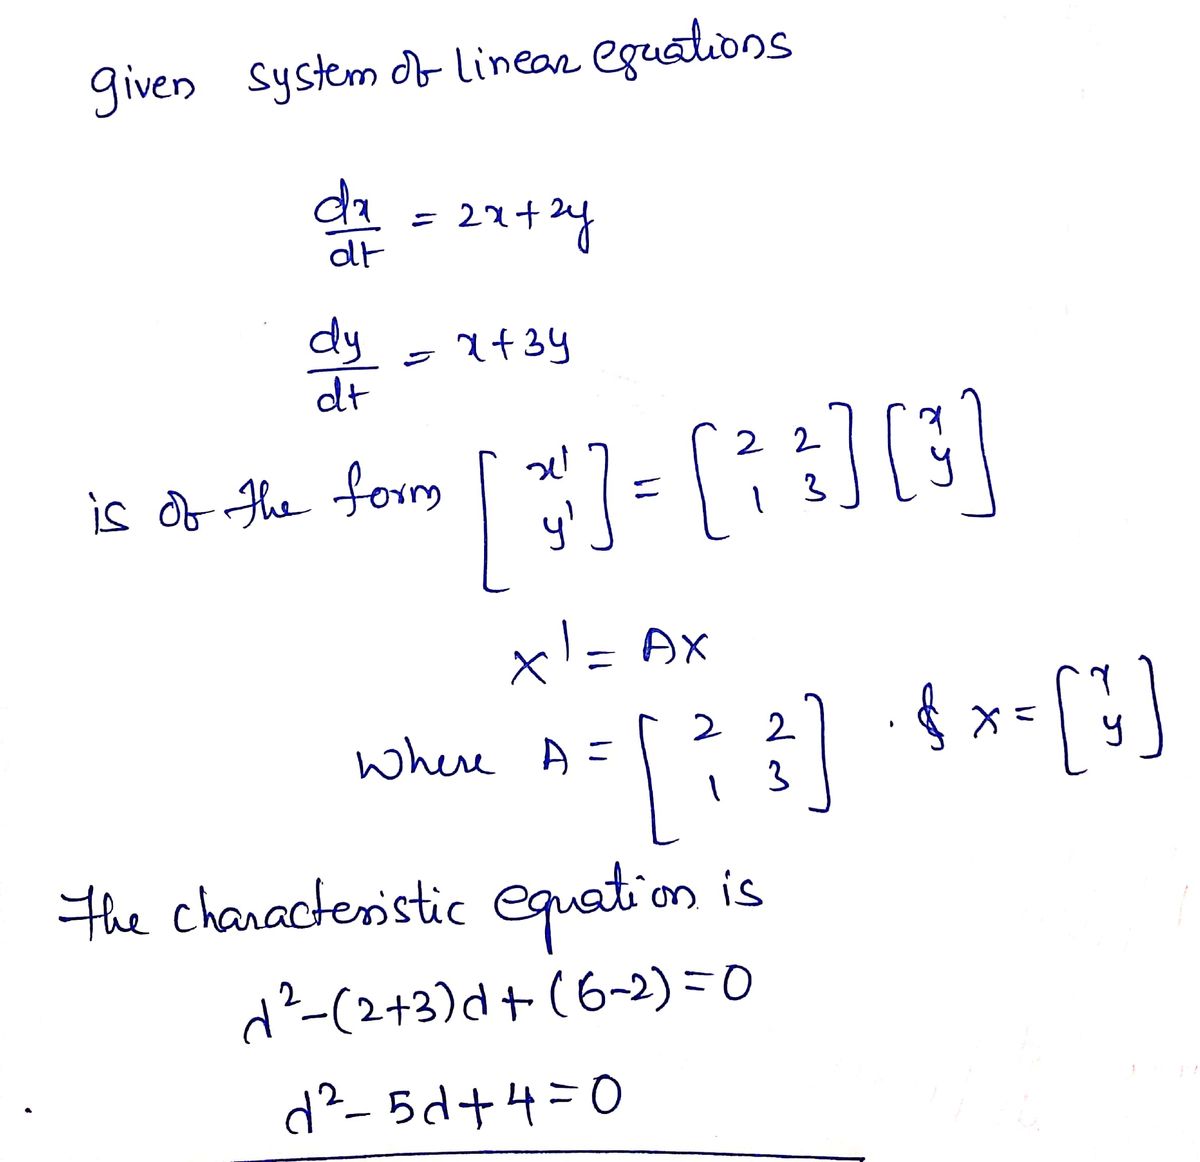 given system of linear equations
dx/dt = 2x+2y
dy/dt = x+3y
is of the form [x' y'] = [2 2 1 3] [x y]
x' = AX
where A = [2 2 1 3] . & x = [x y]
The characteristic equation is
d²-(2+3)d+(6-2)=0
d²-5d+4=0